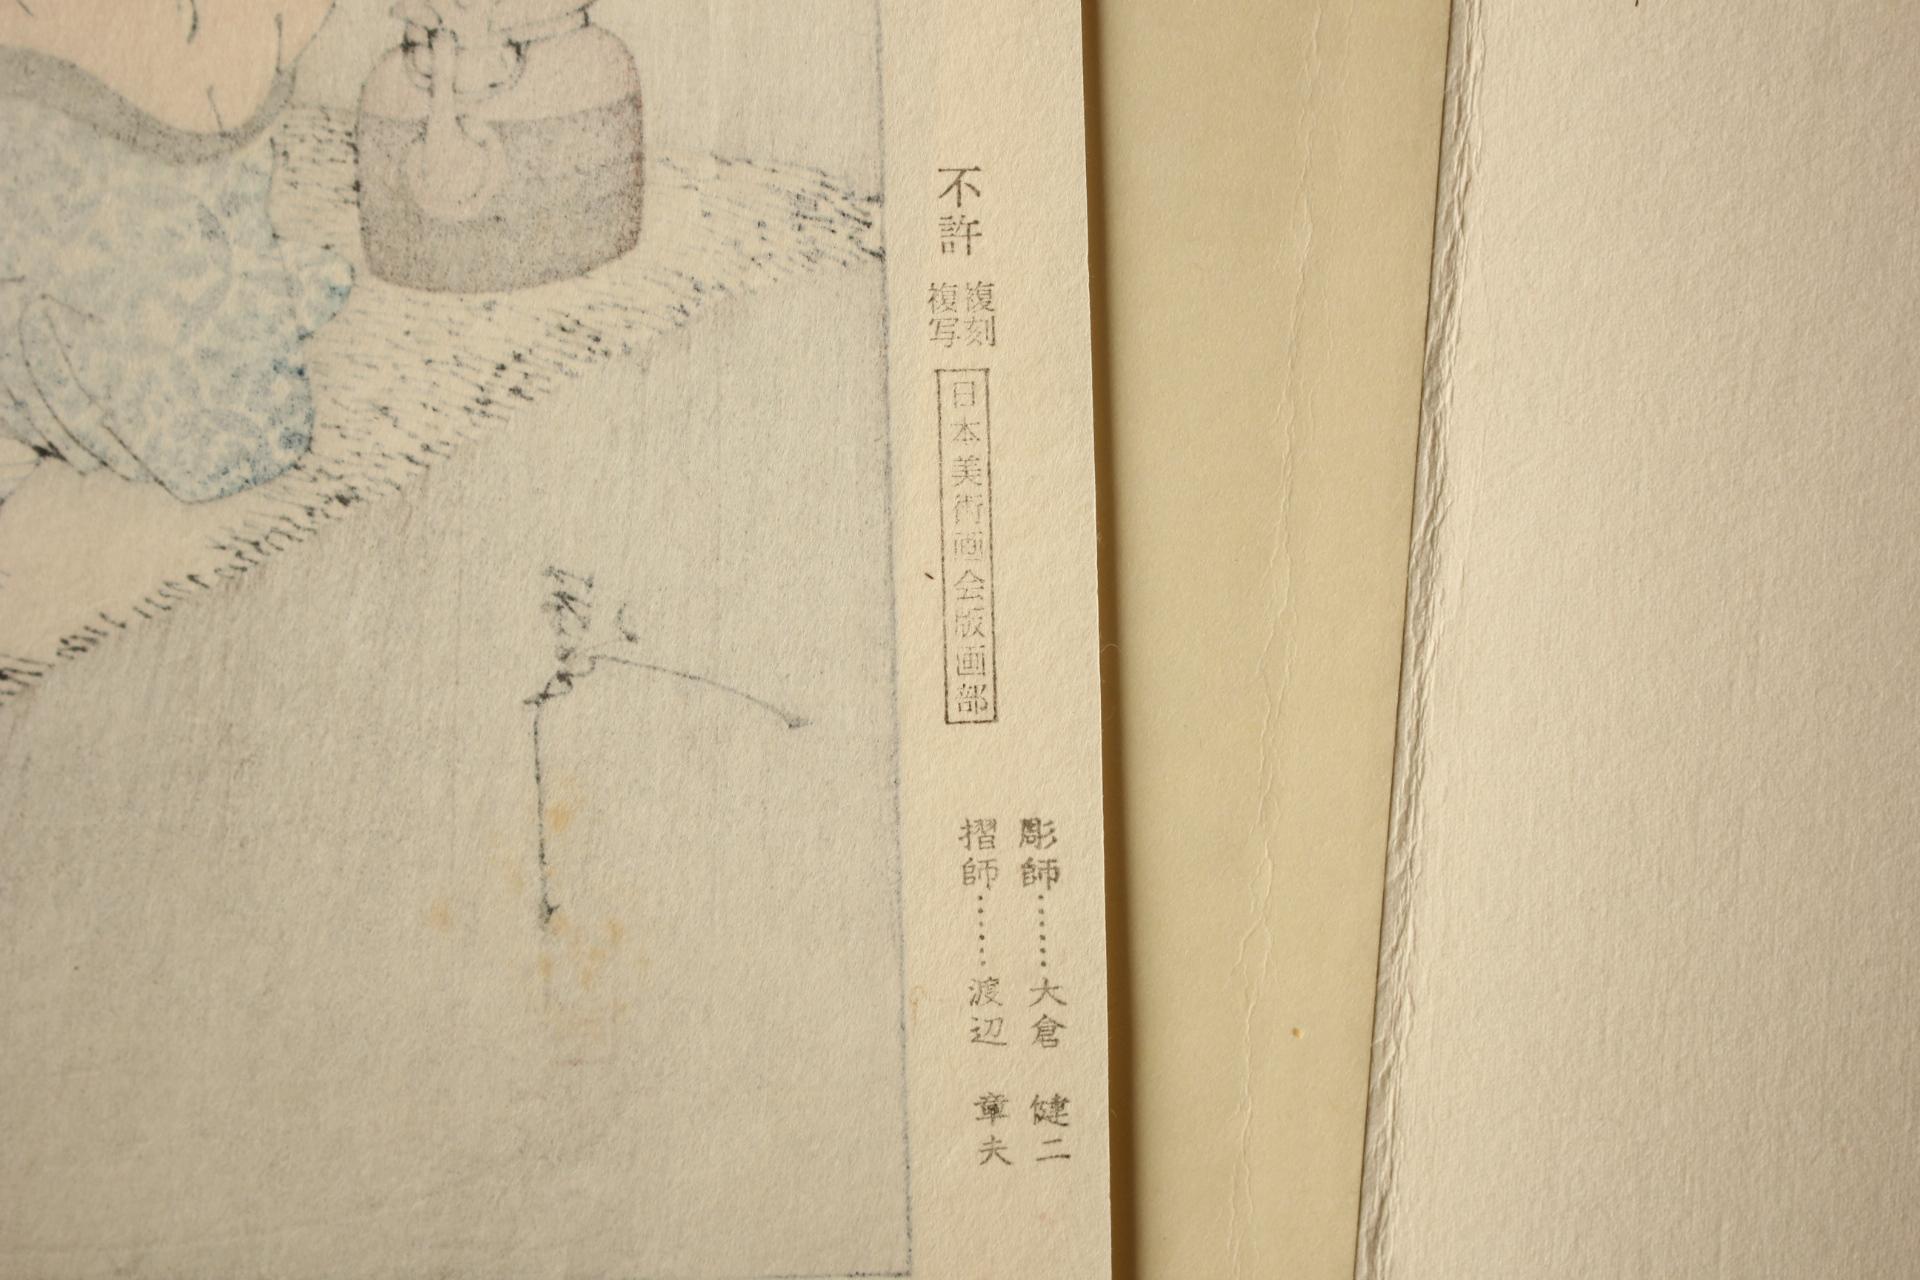 不許 複刻
複写
日本美術画会版画部
彫師………大倉 健二
摺師………渡辺 章夫